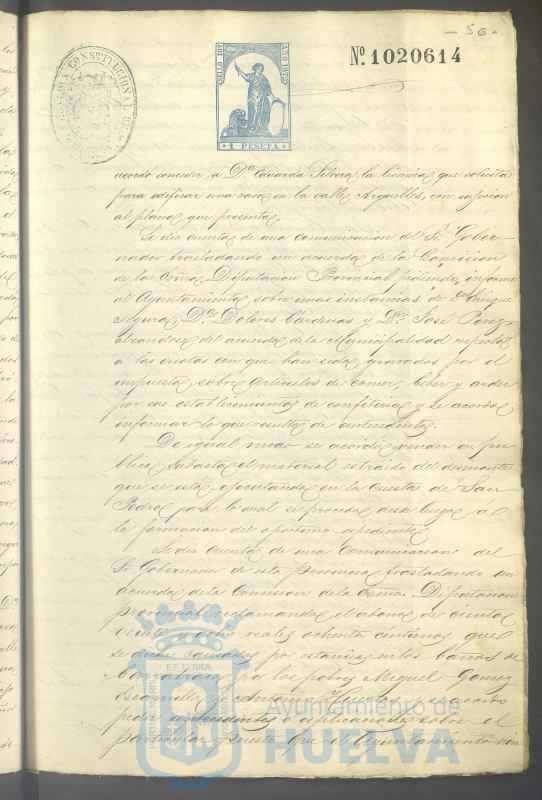 - 56 -
Nº 1020614
ALCALDIA CONSTITUCIONAL
SELLO
AÑO 1872
1 PESETA
acordó conceder á Dª Eduarda la licencia que solicita
para edificar una casa en la calle Arguelles, con sujecion
al plano que presenta.
Se dió cuenta de una comunicacion del Sr Gober-
nador trasladando un acuerdo de la Comision
de la Excma Diputacion Provincial pidiendo informe
al Ayuntamiento sobre unas instancias de Dn Enrique
Segura, Dª Dolores Cárdenas y Dn José Perez
alzandose del acuerdo de la Municipalidad respecto
á las cuotas con que han sido gravados por el
impuesto sobre articulos de comer, beber y arder
por sus establecimientos de confiteria y se acordó
informar lo que resulta de antecedentes.
De igual modo se acordó vender en pú-
blica subasta el material extraido del desmonte
que se está ejecutando en la Cuesta de San
Pedro, para lo cual se proceda desde luego á
la formacion del oportuno espediente.
Se dió cuenta de una comunicacion del
Sr Gobernador de esta Provincia trasladando un
acuerdo de la Comision de la Excma Diputacion
Provincial reclamando el abono de ciento
veinte reales ochenta centimos que
se dicen causados por estancias en los baños de
por los pobres Miguel Gomez
y Antonio y se acordó
pedir antecedentes ó esplicaciones sobre el
particular, puesto que el Ayuntamiento sin
PORTUS MARIS
ET TERRÆ
CUSTODIA
Ayuntamiento de
HUELVA